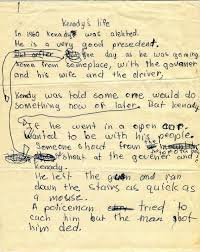 Kenady's life
In 1960 Kenady was alected.
He is a very good presedent.
But after one day as he was goming
home from someplace, with the govener
and his wife and the driver.
Kenedy was told some one would do
something now or later. But kenedy
If he went in a open car.
Wanted to be with his people.
Someone shout from
shout at the govener and
Kenedy.
He left the gun and ran
down the stairs as quick as
a mouse.
A policeman Tried to
cach him but the man shot
him ded.